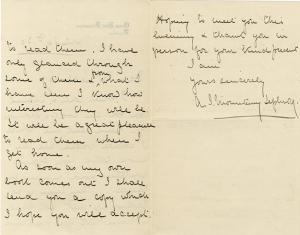 to read them. I have
only glanced through
some of them & from what I
have seen I know how
interesting they will be
it will be a great pleasure
to read them when I
get home.
As soon as my own
book comes out I shall
send you a copy which
I hope you will accept.
Hoping to meet you this
evening & thank you in
person for your kind present
I am
Yours sincerely
A J Mounteney Jephson